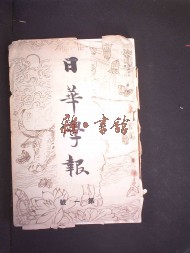 日華學報
第一號